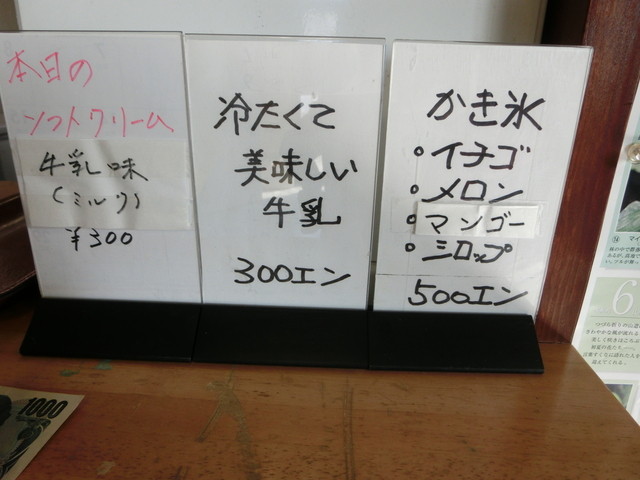 本日の
ソフトクリーム
牛乳味
(ミルク)
¥300
冷たくて
美味しい
牛乳
300エン
かき氷
イチゴ
メロン
マンゴー
シロップ
500エン
1000
6